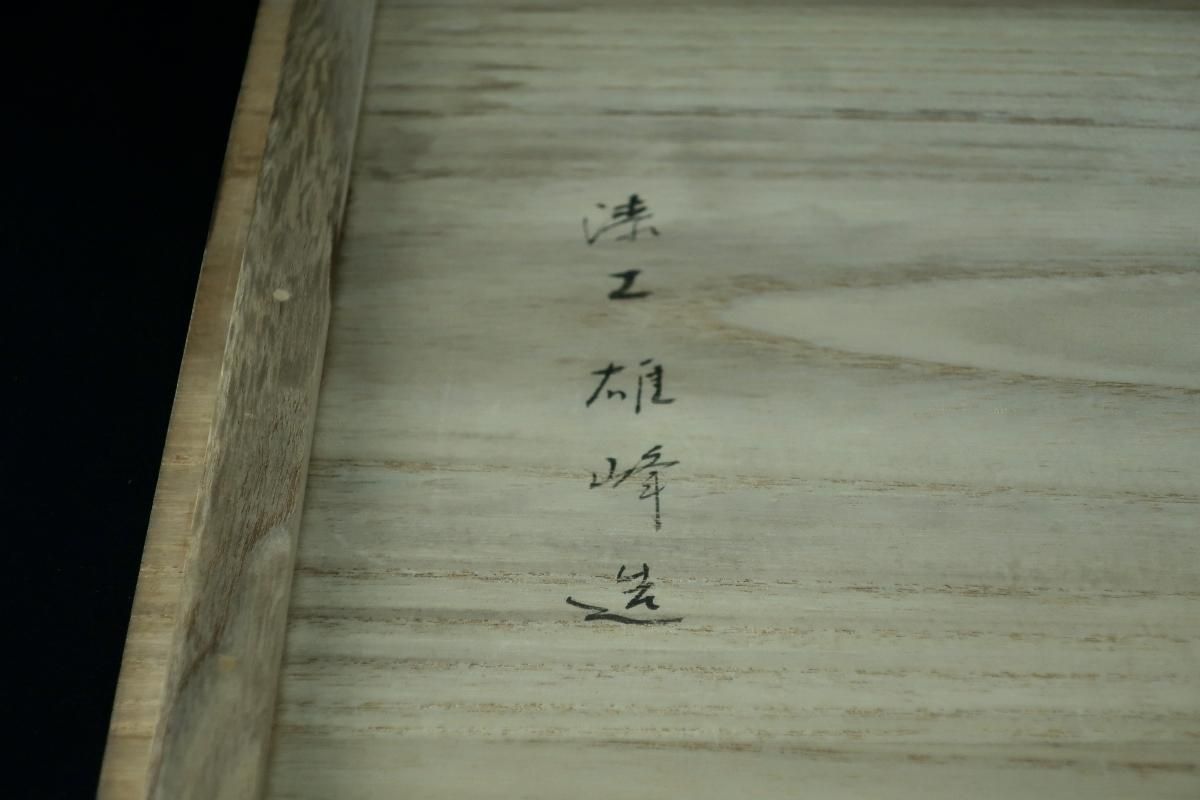 漆工雄峰造